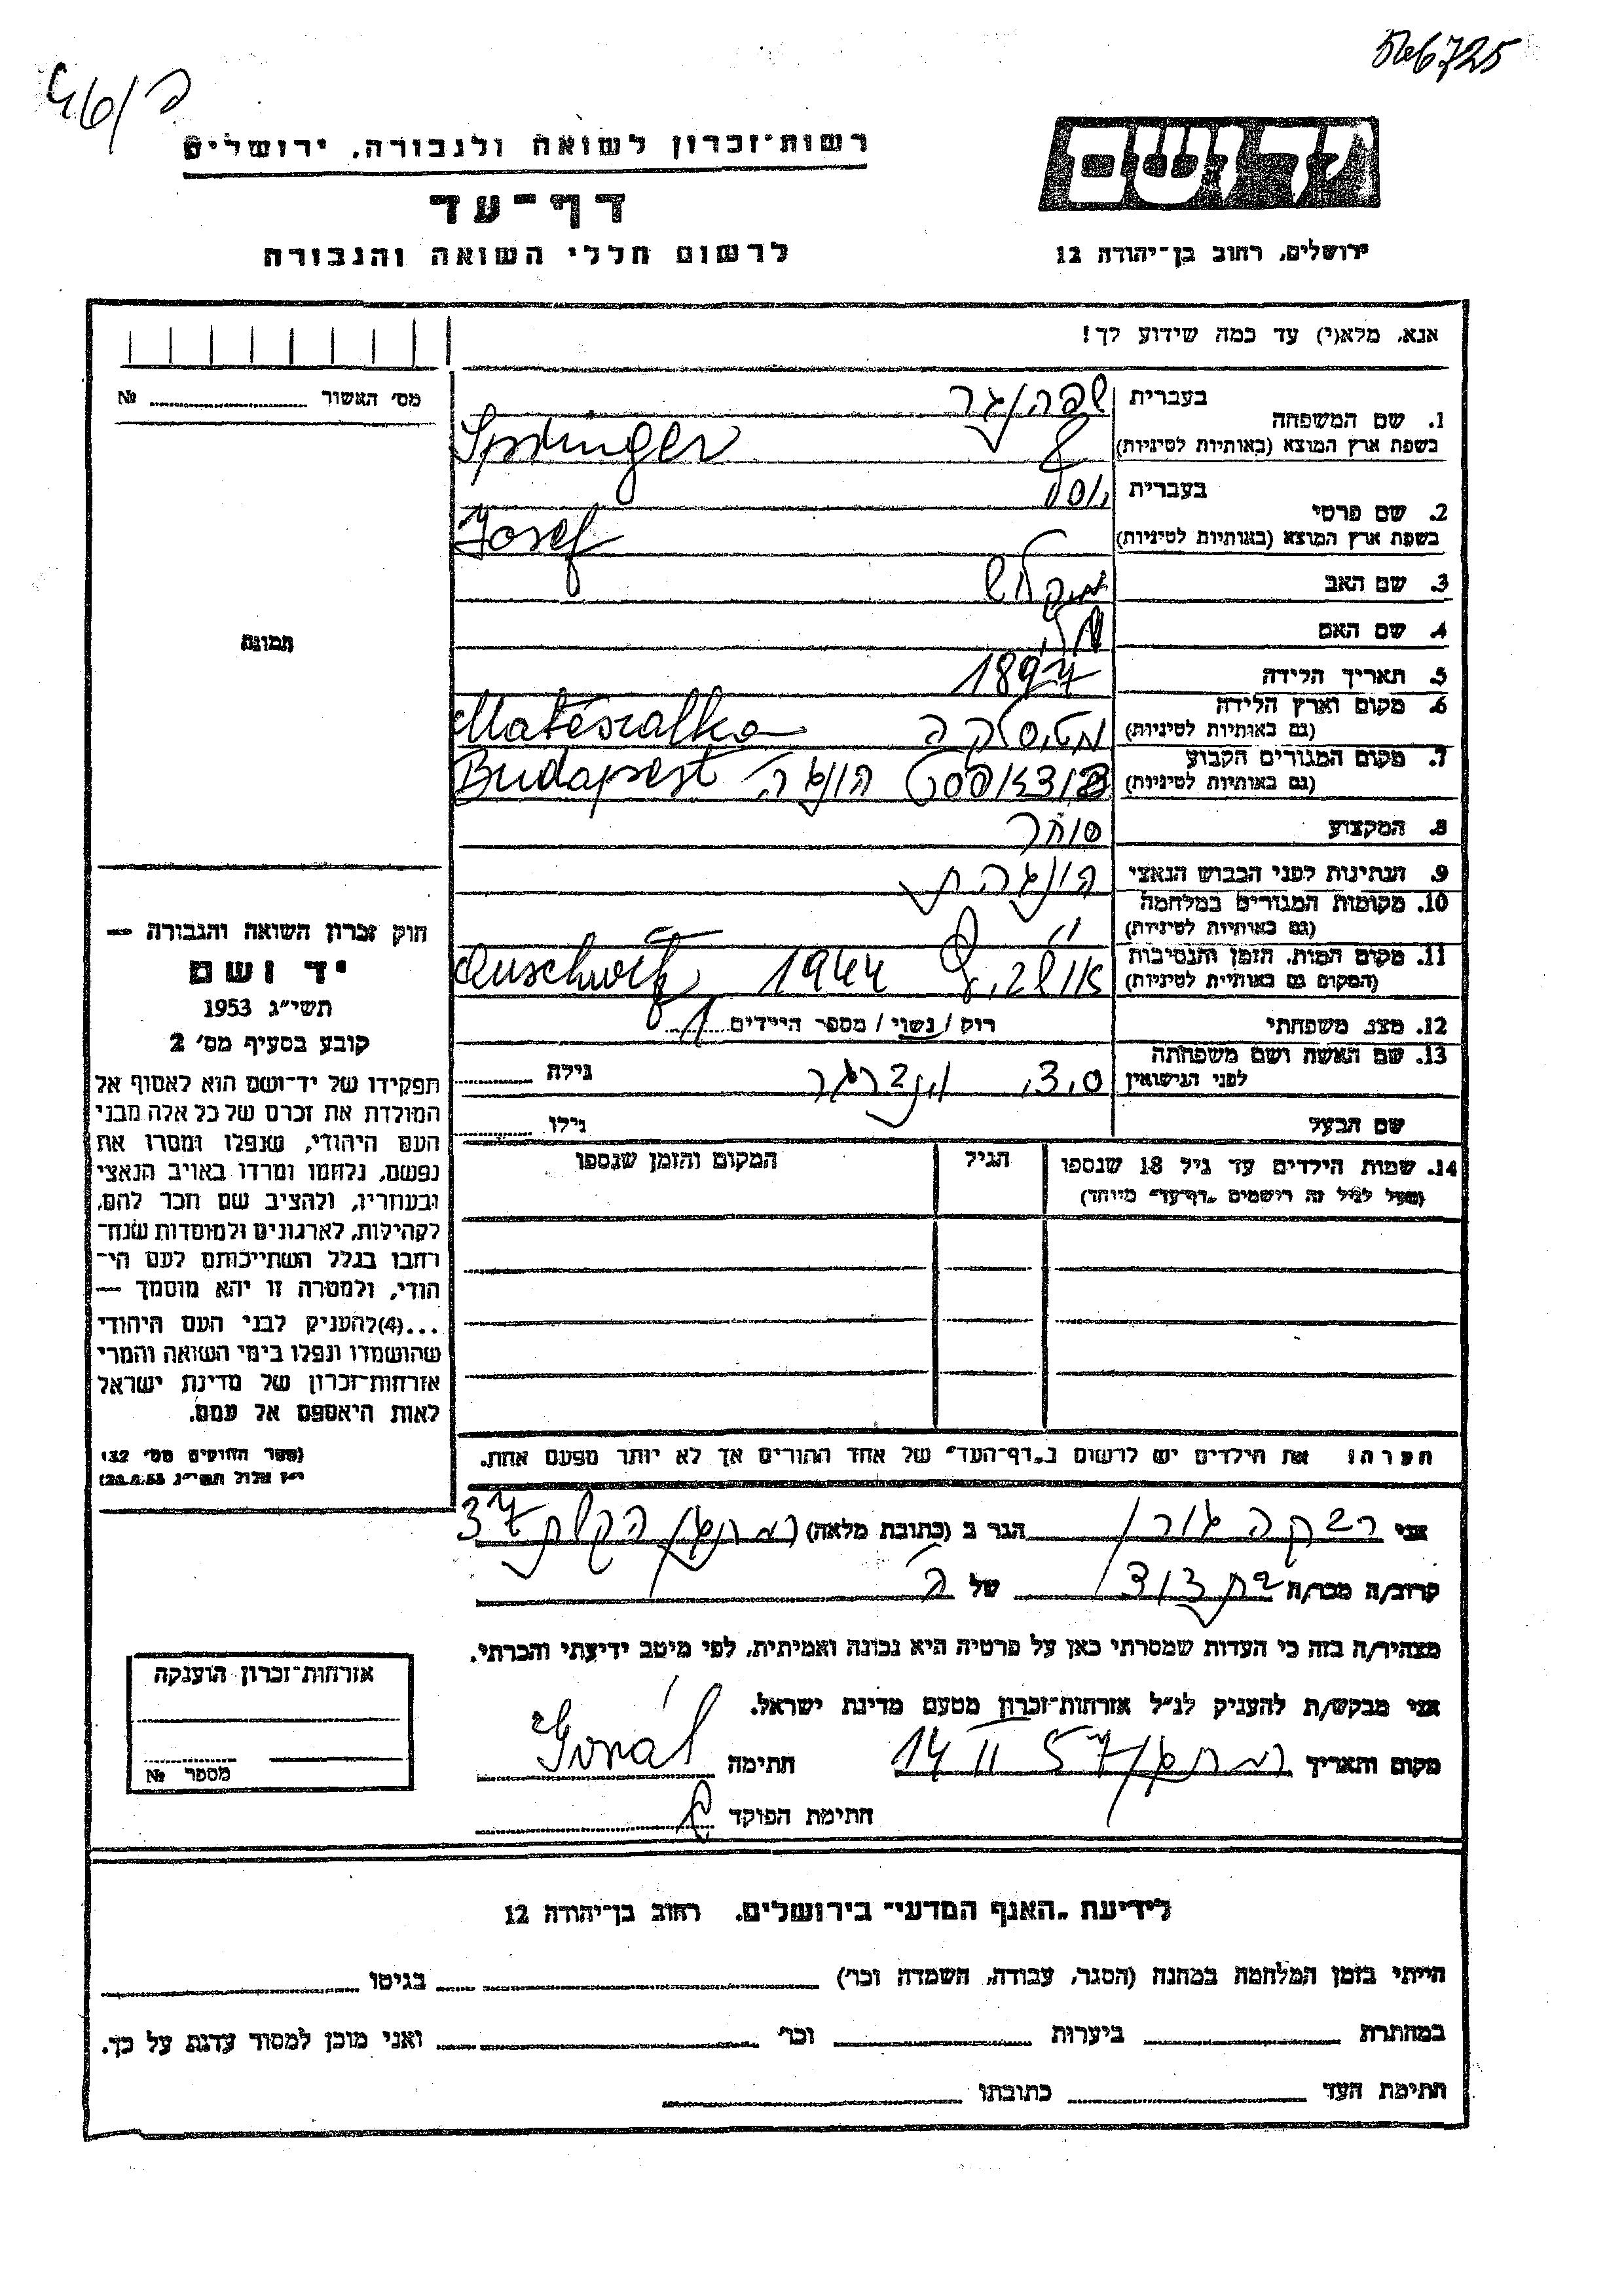 רשות־זכרון לשואה ולגבורה, ירושלים
דף־עד
לרשום חללי השואה והגבורה
יד ושם
ירושלים, רחוב בן־יהודה 12
אנא, מלא(י) עד כמה שידוע לך!
מס' האשור № 
1. שם המשפחה
בעברית
בשפת ארץ המוצא (באותיות לטיניות) Springer
2. שם פרטי
בעברית יוסף
בשפת ארץ המוצא (באותיות לטיניות) Josef
3. שם האב
4. שם האם
5. תאריך הלידה 1897
6. מקום וארץ הלידה
(גם באותיות לטיניות) Matészalka
7. מקום המגורים הקבוע
(גם באותיות לטיניות) Budapest
8. המקצוע סוחר
9. הנתינות לפני הכבוש הנאצי
10. מקומות המגורים במלחמה
(גם באותיות לטיניות)
11. מקום המות, הזמן והנסיבות
(המקום גם באותיות לטיניות) 1944 Auschwitz
12. מצב משפחתי רוק / נשוי / מספר הילדים 1
13. שם האשה ושם משפחתה
לפני הנישואין גילה
שם הבעל גילו
14. שמות הילדים עד גיל 18 שנספו
(מעל לגיל זה רישמים "דף־עד" מיוחד)
הגיל
המקום והזמן שנספו
הערה: את הילדים יש לרשום ב"דף־העד" של אחד ההורים אך לא יותר מפעם אחת.
תמונה
חוק זכרון השואה והגבורה —
יד ושם
תשי"ג 1953
קובע בסעיף מס' 2
תפקידו של יד־ושם הוא לאסוף אל
המולדת את זכרם של כל אלה מבני
העם היהודי, שנפלו ומסרו את
נפשם, נלחמו ומרדו באויב הנאצי
ובעוזריו, ולהציב שם וזכר להם,
לקהילות, לארגונים ולמוסדות שנח־
רבו בגלל השתייכותם לעם הי־
הודי, ולמטרה זו יהא מוסמך —
...(4)להעניק לבני העם היהודי
שהושמדו ונפלו בימי השואה והמרי
אזרחות־זכרון של מדינת ישראל
לאות היאספם אל עמם.
(ספר החוקים מס' 132
י"ז אלול תשי"ג 28.8.53)
אני רבקה גורן הגר ב (כתובת מלאה) 37
קרוב/ה מכר/ה בת דוד של
מצהיר/ה בזה כי העדות שמסרתי כאן על פרטיה היא נכונה ואמיתית, לפי מיטב ידיעתי והכרתי.
אני מבקש/ת להעניק לנ"ל אזרחות־זכרון מטעם מדינת ישראל.
מקום ותאריך רמת גן 14 II 57 חתימה
חתימת הפוקד
אזרחות־זכרון הוענקה
מספר №
לידיעת "האגף המדעי" בירושלים, רחוב בן־יהודה 12
הייתי בזמן המלחמה במחנה (הסגר, עבודה, השמדה וכו') בגיטו
במחתרת ביערות וכו' ואני מוכן למסור עדות על כך.
חתימת העד כתובתו